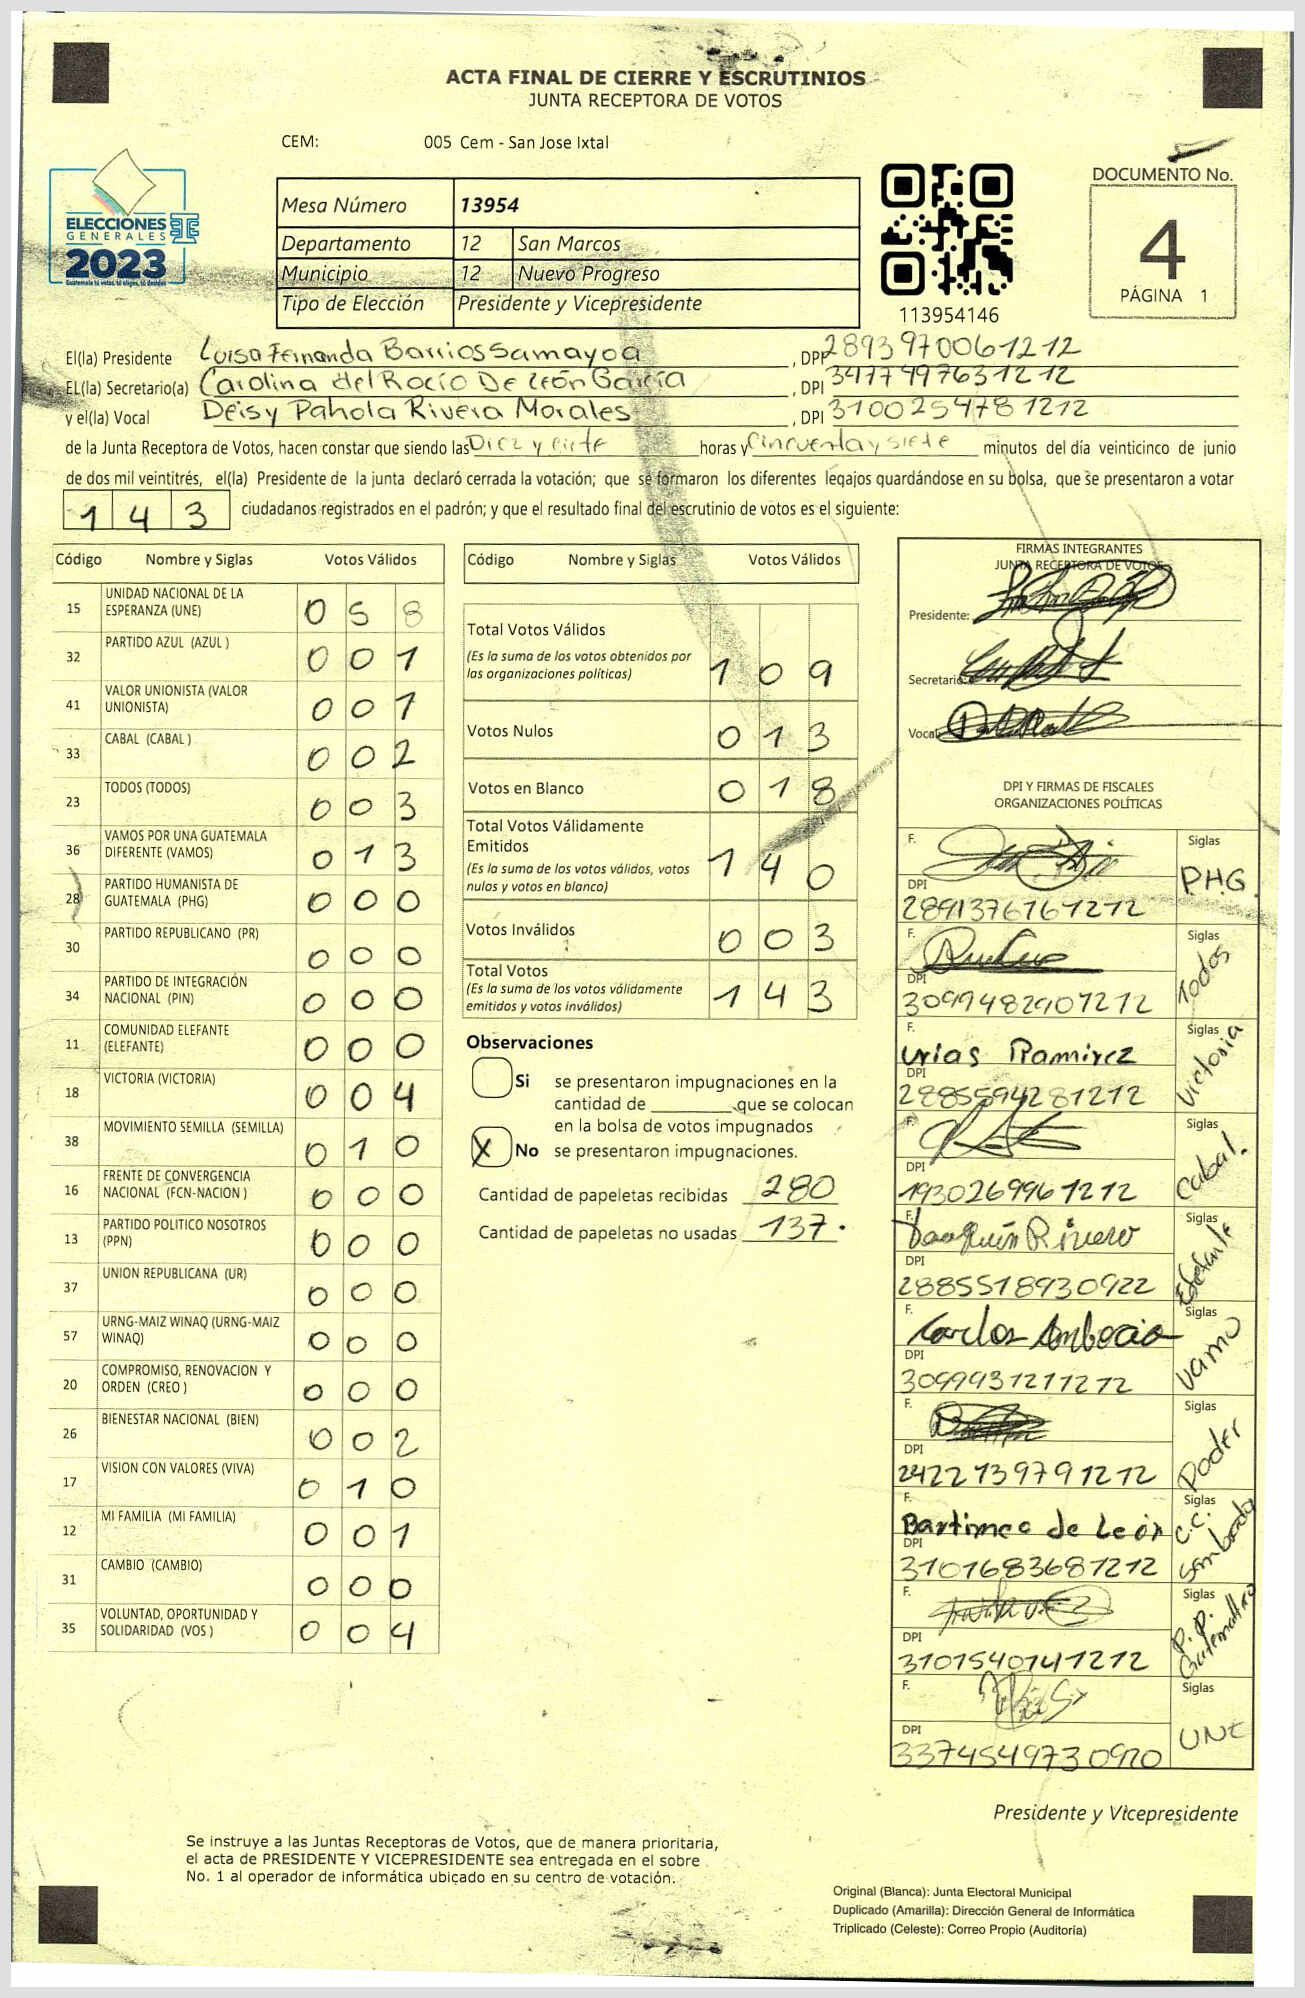 ACTA FINAL DE CIERRE Y ESCRUTINIOS
JUNTA RECEPTORA DE VOTOS
CEM: 005 Cem - San Jose Ixtal
ELECCIONES
GENERALES
2023
Guatemala tú votas, tú eliges, tú decides
Mesa Número 13954
Departamento 12 San Marcos
Municipio 12 Nuevo Progreso
Tipo de Elección Presidente y Vicepresidente
113954146
DOCUMENTO No.
4
PÁGINA 1
El(la) Presidente Luisa Fernanda Barrios Samayoa, DPI 2893970061212
EL(la) Secretario(a) Carolina del Rocío De León García, DPI 3477497631212
y el(la) Vocal Deisy Pahola Rivera Morales, DPI 3100254781212
de la Junta Receptora de Votos, hacen constar que siendo las Diez y ciete horas y Cincuenta y siete minutos del día veinticinco de junio
de dos mil veintitrés, el(la) Presidente de la junta declaró cerrada la votación; que se formaron los diferentes legajos guardándose en su bolsa, que se presentaron a votar
143 ciudadanos registrados en el padrón; y que el resultado final del escrutinio de votos es el siguiente:
Código Nombre y Siglas Votos Válidos
15 UNIDAD NACIONAL DE LA ESPERANZA (UNE) 058
32 PARTIDO AZUL (AZUL ) 001
41 VALOR UNIONISTA (VALOR UNIONISTA) 001
33 CABAL (CABAL ) 002
23 TODOS (TODOS) 003
36 VAMOS POR UNA GUATEMALA DIFERENTE (VAMOS) 013
28 PARTIDO HUMANISTA DE GUATEMALA (PHG) 000
30 PARTIDO REPUBLICANO (PR) 000
34 PARTIDO DE INTEGRACIÓN NACIONAL (PIN) 000
11 COMUNIDAD ELEFANTE (ELEFANTE) 000
18 VICTORIA (VICTORIA) 004
38 MOVIMIENTO SEMILLA (SEMILLA) 010
16 FRENTE DE CONVERGENCIA NACIONAL (FCN-NACION ) 000
13 PARTIDO POLITICO NOSOTROS (PPN) 000
37 UNION REPUBLICANA (UR) 000
57 URNG-MAIZ WINAQ (URNG-MAIZ WINAQ) 000
20 COMPROMISO, RENOVACION Y ORDEN (CREO ) 000
26 BIENESTAR NACIONAL (BIEN) 002
17 VISION CON VALORES (VIVA) 010
12 MI FAMILIA (MI FAMILIA) 001
31 CAMBIO (CAMBIO) 000
35 VOLUNTAD, OPORTUNIDAD Y SOLIDARIDAD (VOS ) 004
Código Nombre y Siglas Votos Válidos
Total Votos Válidos 109
(Es la suma de los votos obtenidos por
las organizaciones políticas)
Votos Nulos 013
Votos en Blanco 018
Total Votos Válidamente
Emitidos 140
(Es la suma de los votos válidos, votos
nulos y votos en blanco)
Votos Inválidos 003
Total Votos 143
(Es la suma de los votos válidamente
emitidos y votos inválidos)
Observaciones
Si se presentaron impugnaciones en la
cantidad de ________ que se colocan
en la bolsa de votos impugnados
X No se presentaron impugnaciones.
Cantidad de papeletas recibidas 280
Cantidad de papeletas no usadas 137.
FIRMAS INTEGRANTES
JUNTA RECEPTORA DE VOTOS
Presidente:
Secretario:
Vocal:
DPI Y FIRMAS DE FISCALES
ORGANIZACIONES POLÍTICAS
F. Siglas P.H.G.
DPI 2891376161212
F. Siglas Todos
DPI 3099482901212
F. Urias Ramirez Siglas Victoria
DPI 2885594281212
F. Siglas Cabal.
DPI 1930269961212
F. Joaquín Rivero Siglas Elefante
DPI 2885518930922
F. Carlos Ambrocio Siglas Vamo
DPI 3099931211212
F. Siglas Poder
DPI 2422139791212
F. Bartimeo de León Siglas C.C. Sembrado
DPI 3101683681212
F. Siglas P.P.
DPI 3101540141212
F. Siglas UNE
DPI 3374549730920
Presidente y Vicepresidente
Se instruye a las Juntas Receptoras de Votos, que de manera prioritaria,
el acta de PRESIDENTE Y VICEPRESIDENTE sea entregada en el sobre
No. 1 al operador de informática ubicado en su centro de votación.
Original (Blanca): Junta Electoral Municipal
Duplicado (Amarilla): Dirección General de Informática
Triplicado (Celeste): Correo Propio (Auditoría)